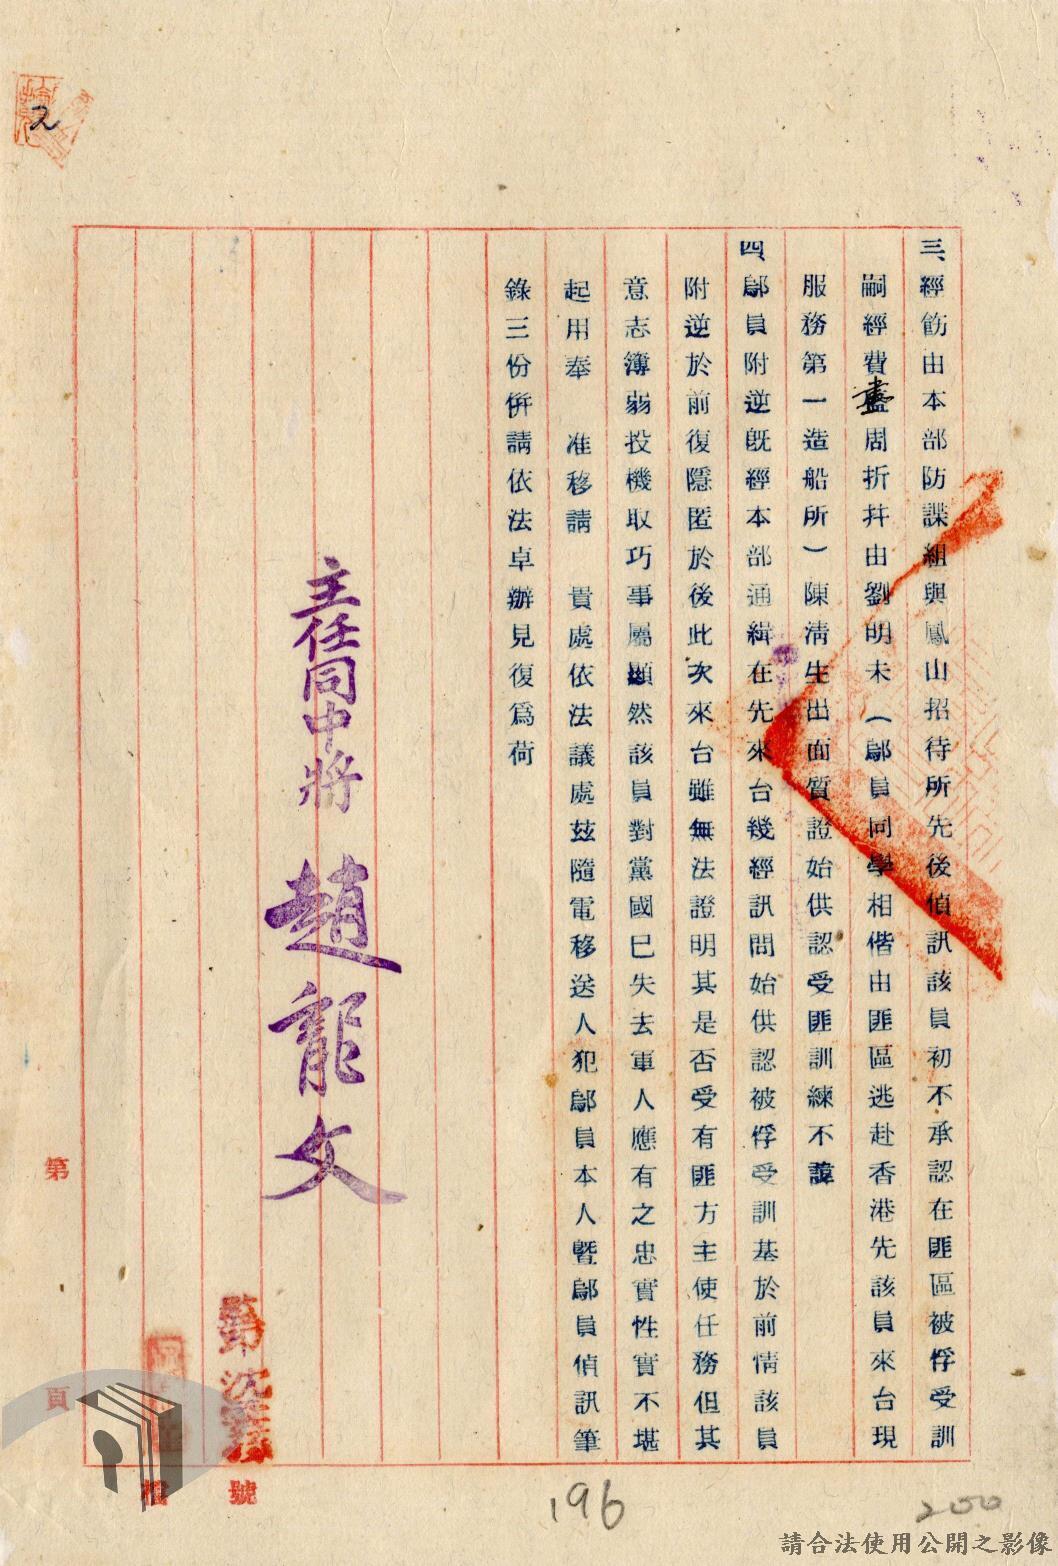 三、經飭由本部防諜組與鳳山招待所先後偵訊該員初不承認在匪區被俘受訓
嗣經費盡周折幷由劉明未(鄔員同學相偕由匪區逃赴香港先該員來台現
服務第一造船所)陳清生出面質證始供認受匪訓練不諱
四、鄔員附逆旣經本部通緝在先來台幾經訊問始供認被俘受訓基於前情該員
附逆於前復隱匿於後此次來台雖無法證明其是否受有匪方主使任務但其
意志簿弱投機取巧事屬顯然該員對黨國已失去軍人應有之忠實性實不堪
起用奉 准移請 貴處依法議處玆隨電移送人犯鄔員本人曁鄔員偵訊筆
錄三份倂請依法卓辦見復爲荷
主任同中將 趙龍文
第
頁
號
2
196
200
請合法使用公開之影像